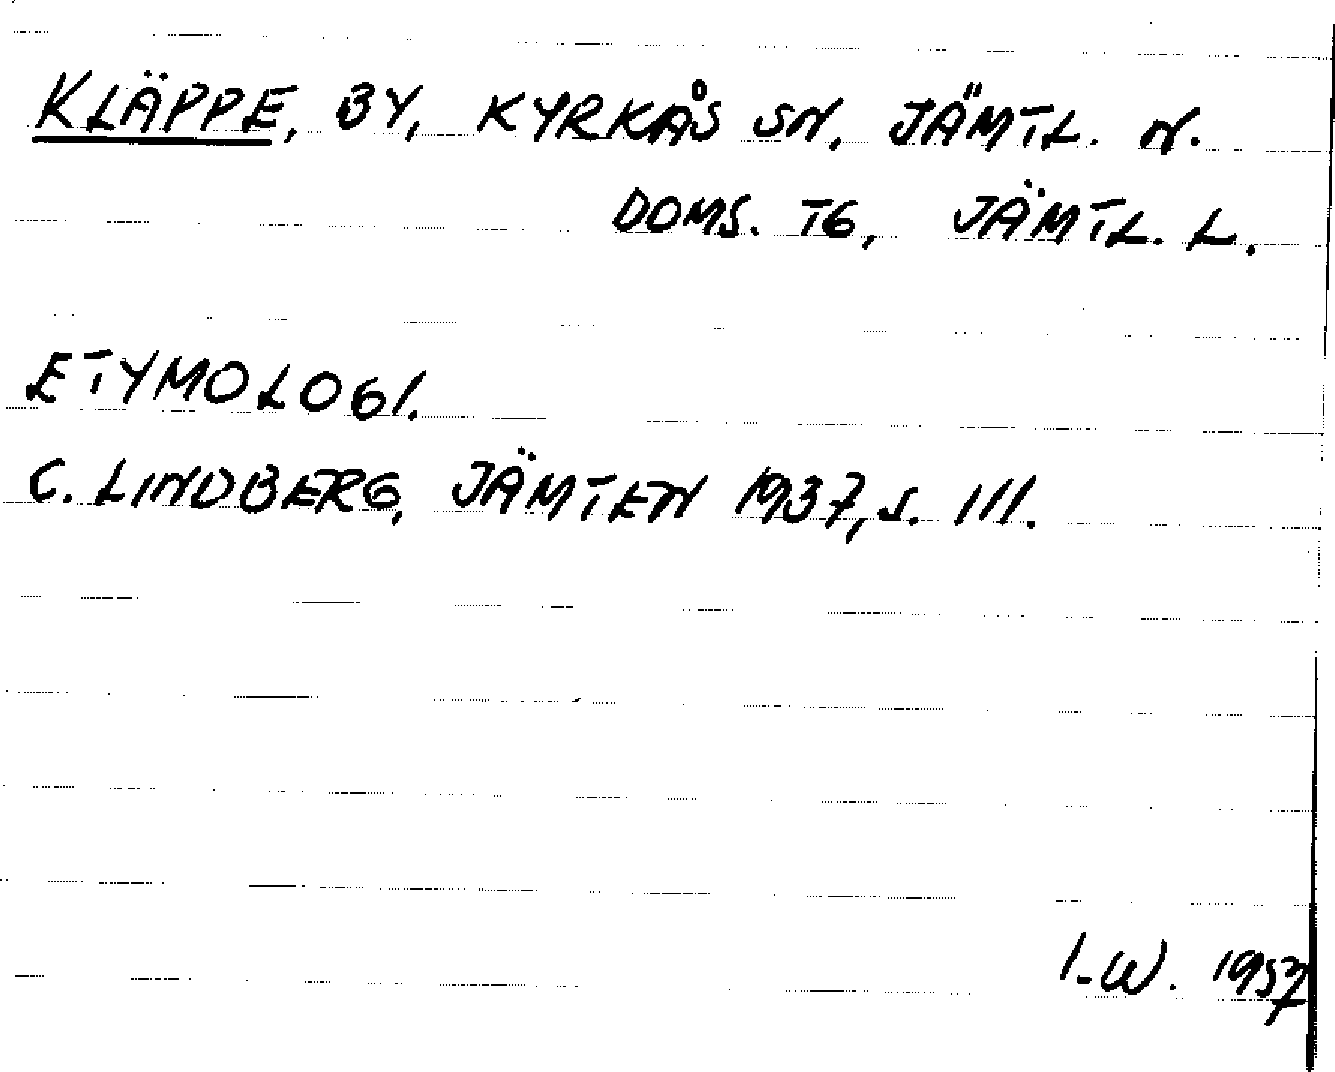 KLÄPPE, BY, KYRKÅS SN, JÄMTL. N.
DOMS. TG, JÄMTL. L.
ETYMOLOGI.
C. LINDBERG, JÄMTEN 1937, S. 111.
I.W. 1957